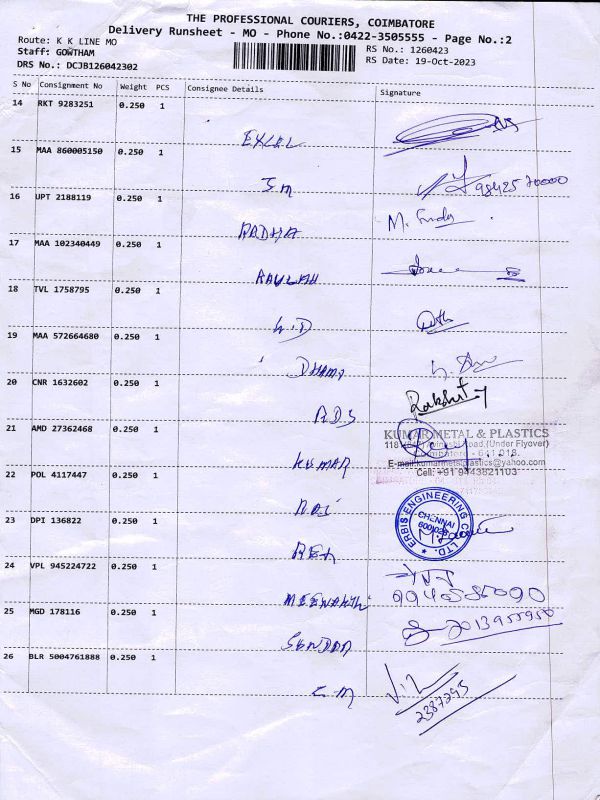 THE PROFESSIONAL COURIERS, COIMBATORE
Delivery Runsheet - MO - Phone No.:0422-3505555 - Page No.:2
Route: K K LINE MO
RS No.: 1260423
Staff: GOWTHAM
RS Date: 19-Oct-2023
DRS No.: DCJB126042302
S No Consignment No Weight PCS Consignee Details Signature
14 RKT 9283251 0.250 1
EXCEL
15 MAA 860005150 0.250 1
SM
98425 70000
16 UPT 2188119 0.250 1
RADHA
M.
17 MAA 102340449 0.250 1
18 TVL 1758795 0.250 1
19 MAA 572664680 0.250 1
20 CNR 1632602 0.250 1
ADS
Rakshit
21 AMD 27362468 0.250 1
KUMAR
KUMAR METAL & PLASTICS
Road,(Under Flyover)
Coimbatore - 641 018.
E-mail:kumarmetalplastics@yahoo.com
Cell: +91 9443821103
22 POL 4117447 0.250 1
23 DPI 136822 0.250 1
ERBIS ENGINEERING CO. LTD.
CHENNAI
600 028
24 VPL 945224722 0.250 1
MEENAKSHI
25 MGD 178116 0.250 1
26 BLR 5004761888 0.250 1
2387295